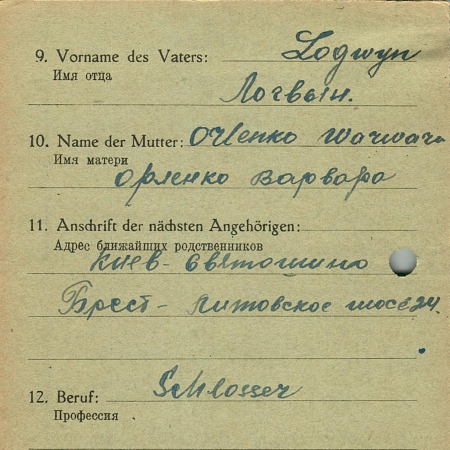 9. Vorname des Vaters: Logwyn
Имя отца
Логвын.
10. Name der Mutter: Orlenko Warwara
Имя матери
Орленко Варвара
11. Anschrift der nächsten Angehörigen:
Адрес ближайших родственников
Киев - Святошино
Брест - Литовское шосе 24.
12. Beruf: Schlosser
Профессия